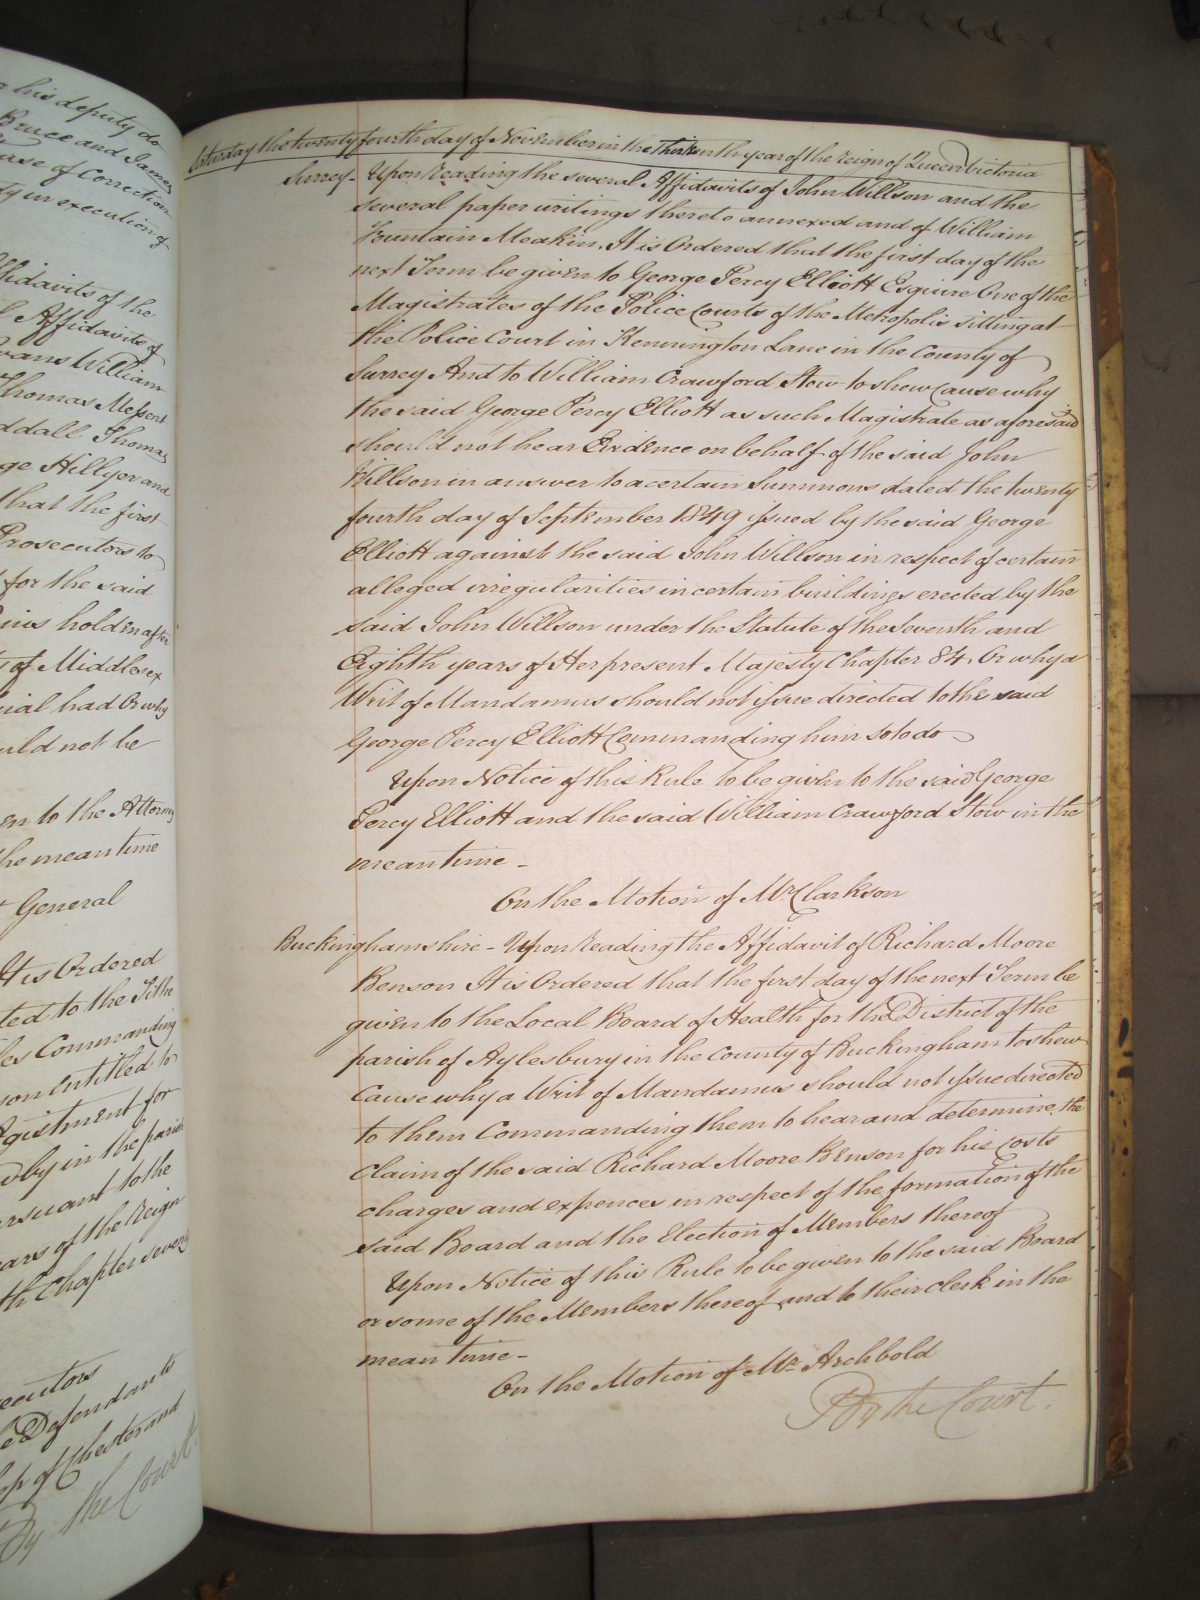 his deputy do
Bruce and James
House of Correction
in execution of
Affidavits of the
Affidavits of
Evans William
Thomas Messent
Thomas
Hillyer and
that the first
Prosecutors to
for the said
holden after
of Middlesex
had Or why
not be
to the Attorney
the mean time
General
It is Ordered
to the Tithe
Commanding
Entitled to
Agistment for
by in the parish
pursuant to the
years of the Reign
Chapter seventy
Defendants
of Chester and
By the Court
Saturday the twenty fourth day of November in the Thirteenth year of the reign of Queen Victoria
Surrey - Upon reading the several Affidavits of John Willson and the
several paper writings thereto annexed and of William
Fountain Meakin. It is Ordered that the first day of the
next Term be given to George Percy Elliott Esquire One of the
Magistrates of the Police Courts of the Metropolis sitting at
the Police Court in Kennington Lane in the County of
Surrey And to William Crawford Stow to shew cause why
the said George Percy Elliott as such Magistrate as aforesaid
should not hear Evidence on behalf of the said John
Willson in answer to a certain Summons dated the twenty
fourth day of September 1849 issued by the said George
Elliott against the said John Willson in respect of certain
alleged irregularities in certain buildings erected by the
said John Willson under the Statute of the Seventh and
Eighth years of Her present Majesty Chapter 84. Or why a
Writ of Mandamus should not issue directed to the said
George Percy Elliott Commanding him so to do
Upon Notice of this Rule to be given to the said George
Percy Elliott and the said William Crawford Stow in the
mean time -
On the Motion of Mr. Clarkson
Buckinghamshire - Upon reading the Affidavit of Richard Moore
Benson It is Ordered that the first day of the next Term be
given to the Local Board of Health for the District of the
parish of Aylesbury in the County of Buckingham to shew
Cause why a Writ of Mandamus should not issue directed
to them Commanding them to hear and determine the
Claim of the said Richard Moore Benson for his Costs
charges and expences in respect of the formation of the
said Board and the Election of Members thereof
Upon Notice of this Rule to be given to the said Board
or some of the Members thereof and to their Clerk in the
mean time -
On the Motion of Mr. Archbold
By the Court.